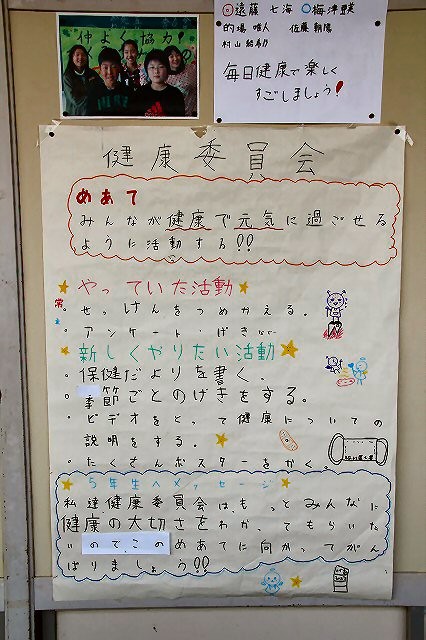 仲よく協力!
◎遠藤 七海 ○梅津 聖美
的場 唯人 佐藤 朝陽
村山 結希乃
毎日健康で楽しく
すごしましょう!
健康委員会
めあて
みんなが健康で元気に過ごせる
ように活動する!!
やっていた活動
常 。せっけんをつめかえる。
。アンケート・げきなど
新しくやりたい活動
。保健だよりを書く。
。季節ごとのげきをする。
。ビデオをとって健康についての
説明をする。
。たくさんポスターをかく。
5年生へメッセージ
私達健康委員会は、もっとみんなに
健康の大切さをわかってもらいた
いのでこのめあてに向かってがん
ばりましょう!!